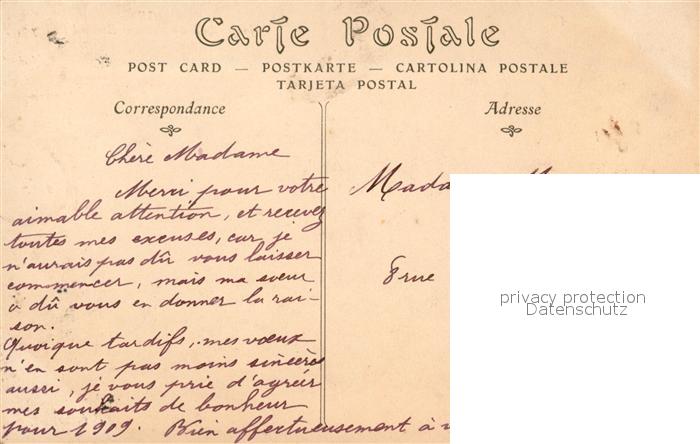 Carte Postale
POST CARD — POSTKARTE — CARTOLINA POSTALE
TARJETA POSTAL
Correspondance
Adresse
Chère Madame
Merci pour votre
aimable attention, et recevez
toutes mes excuses, car je
n'aurais pas dû vous laisser
commencer, mais ma soeur
a dû vous en donner la rai-
son.
Quoique tardifs, mes vœux
n'en sont pas moins sincères
aussi, je vous prie d'agréer
mes souhaits de bonheur
pour 1909. Bien affectueusement à
8 rue
privacy protection
Datenschutz